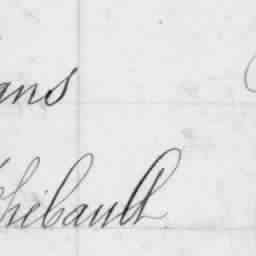 ans
Thibault